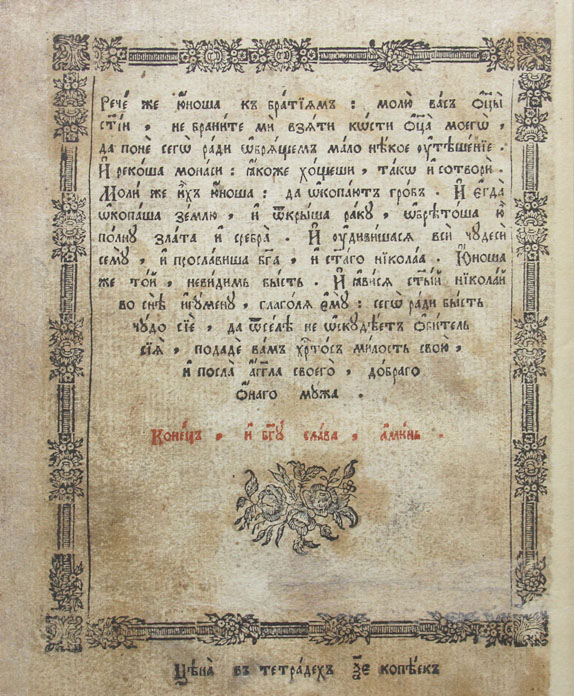 Рече́ же ю҆́ноша къ бра́тїѧмъ : молю̀ ва́съ ѻ҆ц҃ы̀
ст҃і́и , не брани́те мѝ взѧ́ти кѡ́сти ѻ҆ц҃а̀ моегѡ̀ ,
да понѐ сегѡ̀ ра́ди ѡ҆брѧ́щемъ ма́ло нѣ́кое ᲂу҆тѣше́нїе .
И҆ реко́ша мона́си : ꙗ҆́коже хо́щеши , та́кѡ и҆ сотворѝ .
Моли́ же и҆́хъ ю҆́ноша : да ѡ҆копа́ютъ гро́бъ . И҆ є҆гда̀
ѡ҆копа́ша зе́млю , и҆ ѿкры́ша ра́ку , ѡ҆брѣто́ша ю҆̀
по́лну зла́та и҆ сребра̀ . И҆ ᲂу҆диви́шасѧ всѝ чудесѝ
семꙋ̀ , и҆ просла́виша бг҃а , и҆ ст҃а́го нікола́а . Ю҆́ноша
же то́й , неви́димъ бы́сть . И҆ ꙗ҆ви́сѧ ст҃ы́й нікола́й
во снѣ̀ и҆гу́мену , глаго́лѧ є҆мꙋ̀ : сегѡ̀ ра́ди бы́сть
чу́до сїѐ , да ѿсе́лѣ не ѡ҆скꙋдѣ́етъ ѻ҆би́тель
сїѧ̀ , подадѐ ва́мъ хрⷭ҇то́съ ми́лость свою̀ ,
и҆ посла̀ а҆́гг҃ла своего̀ , до́браго
ѻ҆́наго му́жа .
Коне́цъ , и҆ бг҃ꙋ сла́ва , а҆ми́нь .
Цѣна̀ въ тетра́дехъ копѣ́екъ